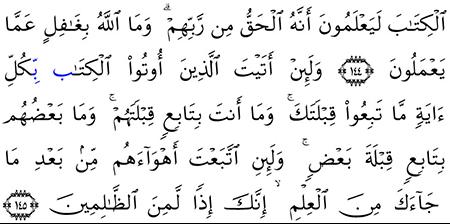 ٱلْكِتَٰبَ لَيَعْلَمُونَ أَنَّهُ ٱلْحَقُّ مِن رَّبِّهِمْ ۗ وَمَا ٱللَّهُ بِغَٰفِلٍ عَمَّا
يَعْمَلُونَ ﴿١٤٤﴾ وَلَئِنْ أَتَيْتَ ٱلَّذِينَ أُوتُوا۟ ٱلْكِتَٰب بِّكُلِّ
ءَايَةٍ مَّا تَبِعُوا۟ قِبْلَتَكَ ۚ وَمَا أَنتَ بِتَابِعٍ قِبْلَتَهُمْ ۚ وَمَا بَعْضُهُم
بِتَابِعٍ قِبْلَةَ بَعْضٍ ۚ وَلَئِنِ ٱتَّبَعْتَ أَهْوَآءَهُم مِّنۢ بَعْدِ مَا
جَآءَكَ مِنَ ٱلْعِلْمِ ۙ إِنَّكَ إِذًا لَّمِنَ ٱلظَّٰلِمِينَ ﴿١٤٥﴾